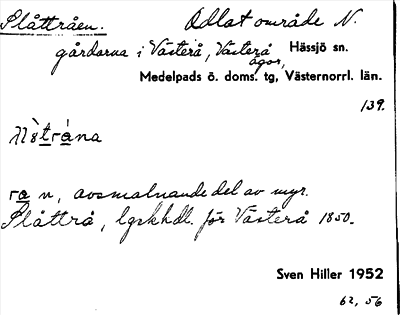 Slåttråen. Odlat område N.
gårdarna i Västerå, Västerå Hässjö sn.
ägor,
Medelpads ö. doms. tg, Västernorrl. län.
139.
ra n, avsmalnande del av myr.
Slåttrå, lgskhdl. för Västerå 1850.
Sven Hiller 1952
62, 56